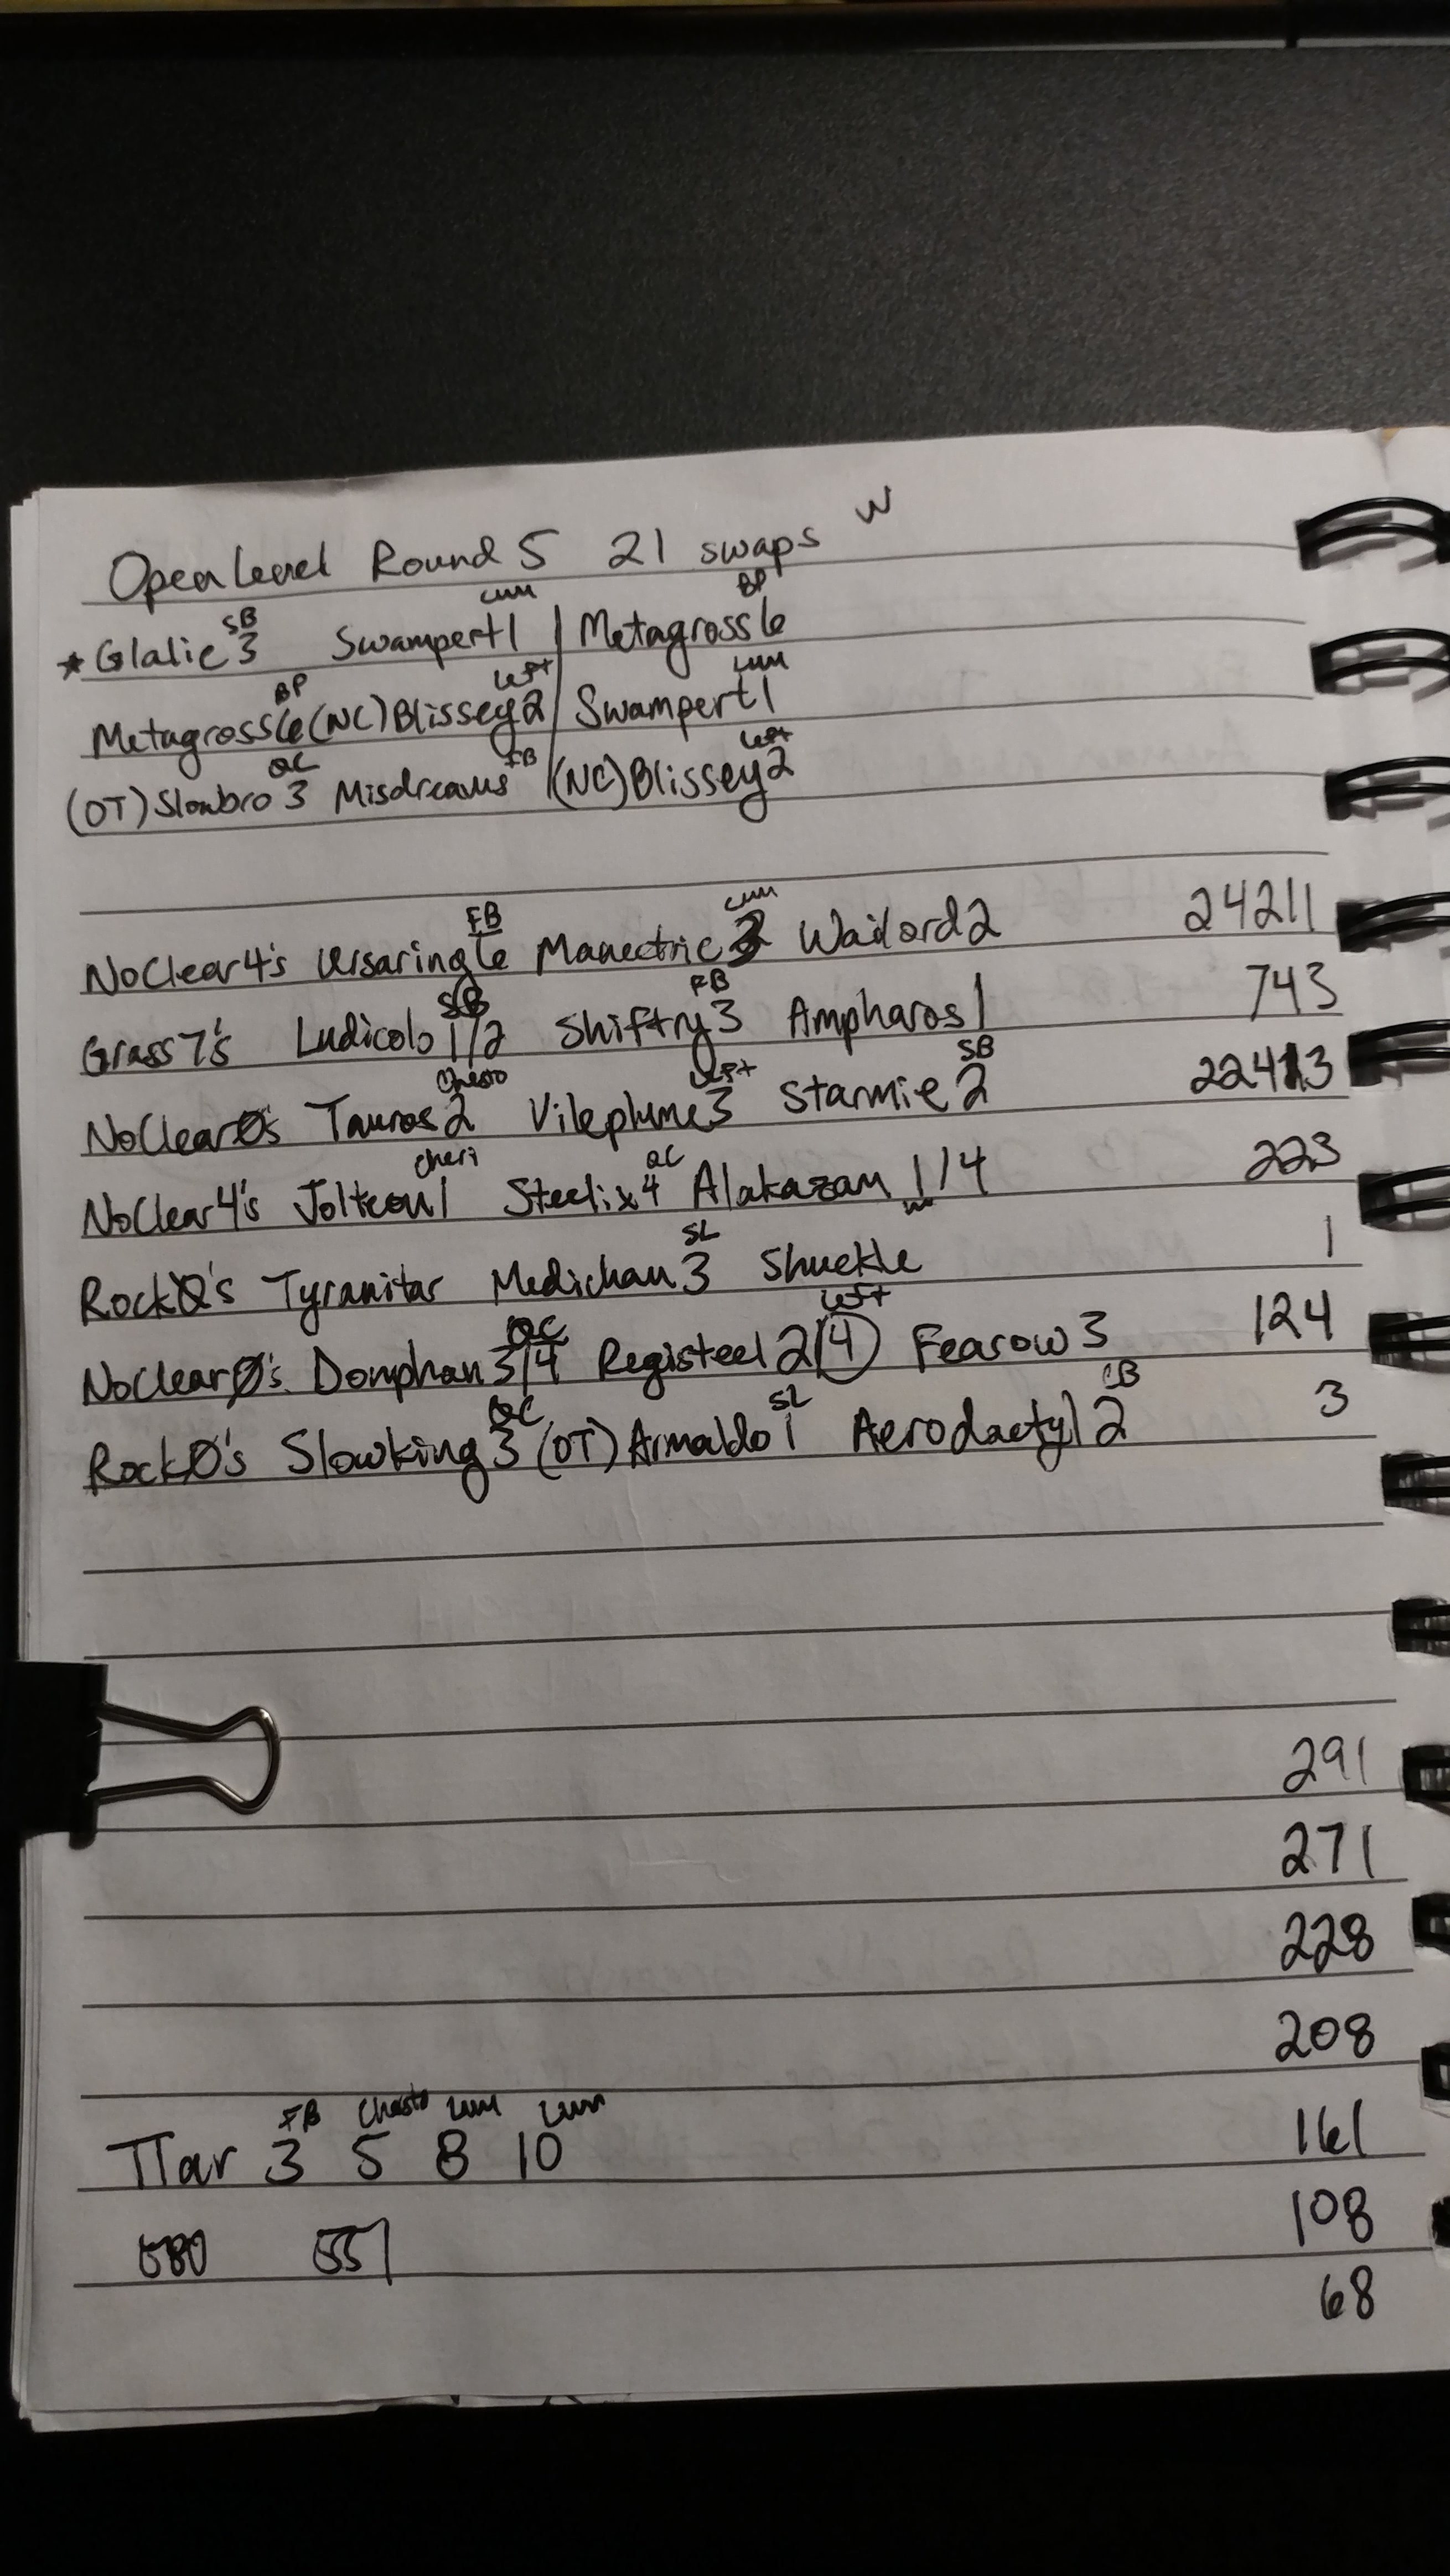 Open Level Round 5 21 swaps W
SB Lum BP
★ Glalie 3 Swampert 1 | Metagross 6
BP Left Lum
Metagross 6 (NC) Blissey 2 | Swampert 1
QC FB Left
(OT) Slowbro 3 Misdreavus | (NC) Blissey 2
FB Lum
NoClear 4's Ursaring 6 Manectric 3 Wailord 2 24211
SB FB
Grass 7's Ludicolo 1/2 Shiftry 3 Ampharos 1 743
Chesto Left SB
NoClear 0's Tauros 2 Vileplume 3 Starmie 2 22413
Cheri QC
NoClear 4's Jolteon 1 Steelix 4 Alakazam 1/4 223
SL
Rock 0's Tyranitar Medicham 3 Shuckle 1
QC Left
NoClear 0's Donphan 3/4 Registeel 2/4 Fearow 3 124
QC SL CB
Rock 0's Slowking 3 (OT) Armaldo 1 Aerodactyl 2 3
291
271
228
208
FB Chesto Lum Lum
TTar 3 5 8 10 161
108
68